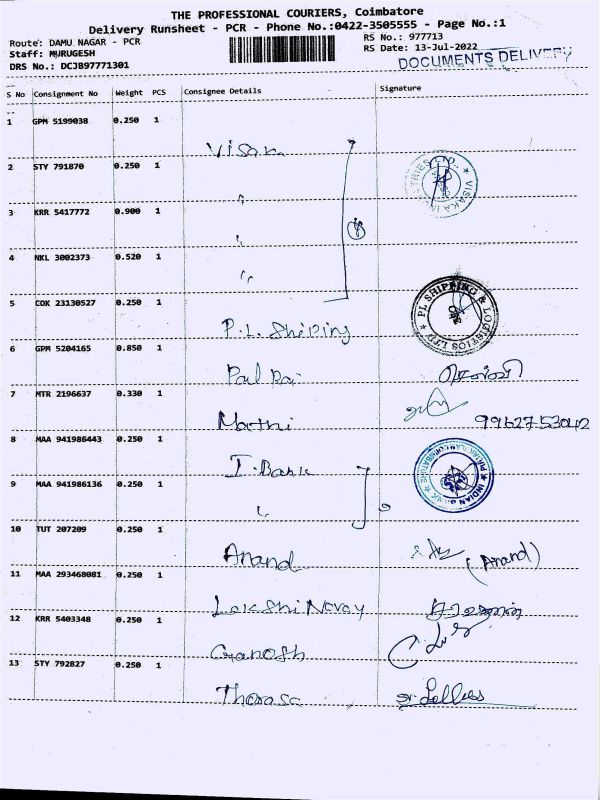 THE PROFESSIONAL COURIERS, Coimbatore
Delivery Runsheet - PCR - Phone No.:0422-3505555 - Page No.:1
Route: DAMU NAGAR - PCR
RS No.: 977713
Staff: MURUGESH
RS Date: 13-Jul-2022
DRS No.: DCJB97771301
DOCUMENTS DELIVERY
S No Consignment No Weight PCS Consignee Details Signature
1 GPM 5199038 0.250 1
Visaka
2 STY 791870 0.250 1
"
VISAKA
3 KRR 5417772 0.900 1
"
4 NKL 3002373 0.520 1
"
5 COK 23130527 0.250 1
P.L. Shiping
PL SHIPPING & LOGISTICS LTD
CBE
6 GPM 5204165 0.850 1
Paul Raj
செல்வி
7 MTR 2196637 0.330 1
Mathi
99627 53042
8 MAA 941986443 0.250 1
I. Bank
INDIAN BANK
9 MAA 941986136 0.250 1
"
10 TUT 207209 0.250 1
Anand
(Anand)
11 MAA 293468081 0.250 1
Lakshi Naray
12 KRR 5403348 0.250 1
Ganesh
13 STY 792827 0.250 1
Tharasa